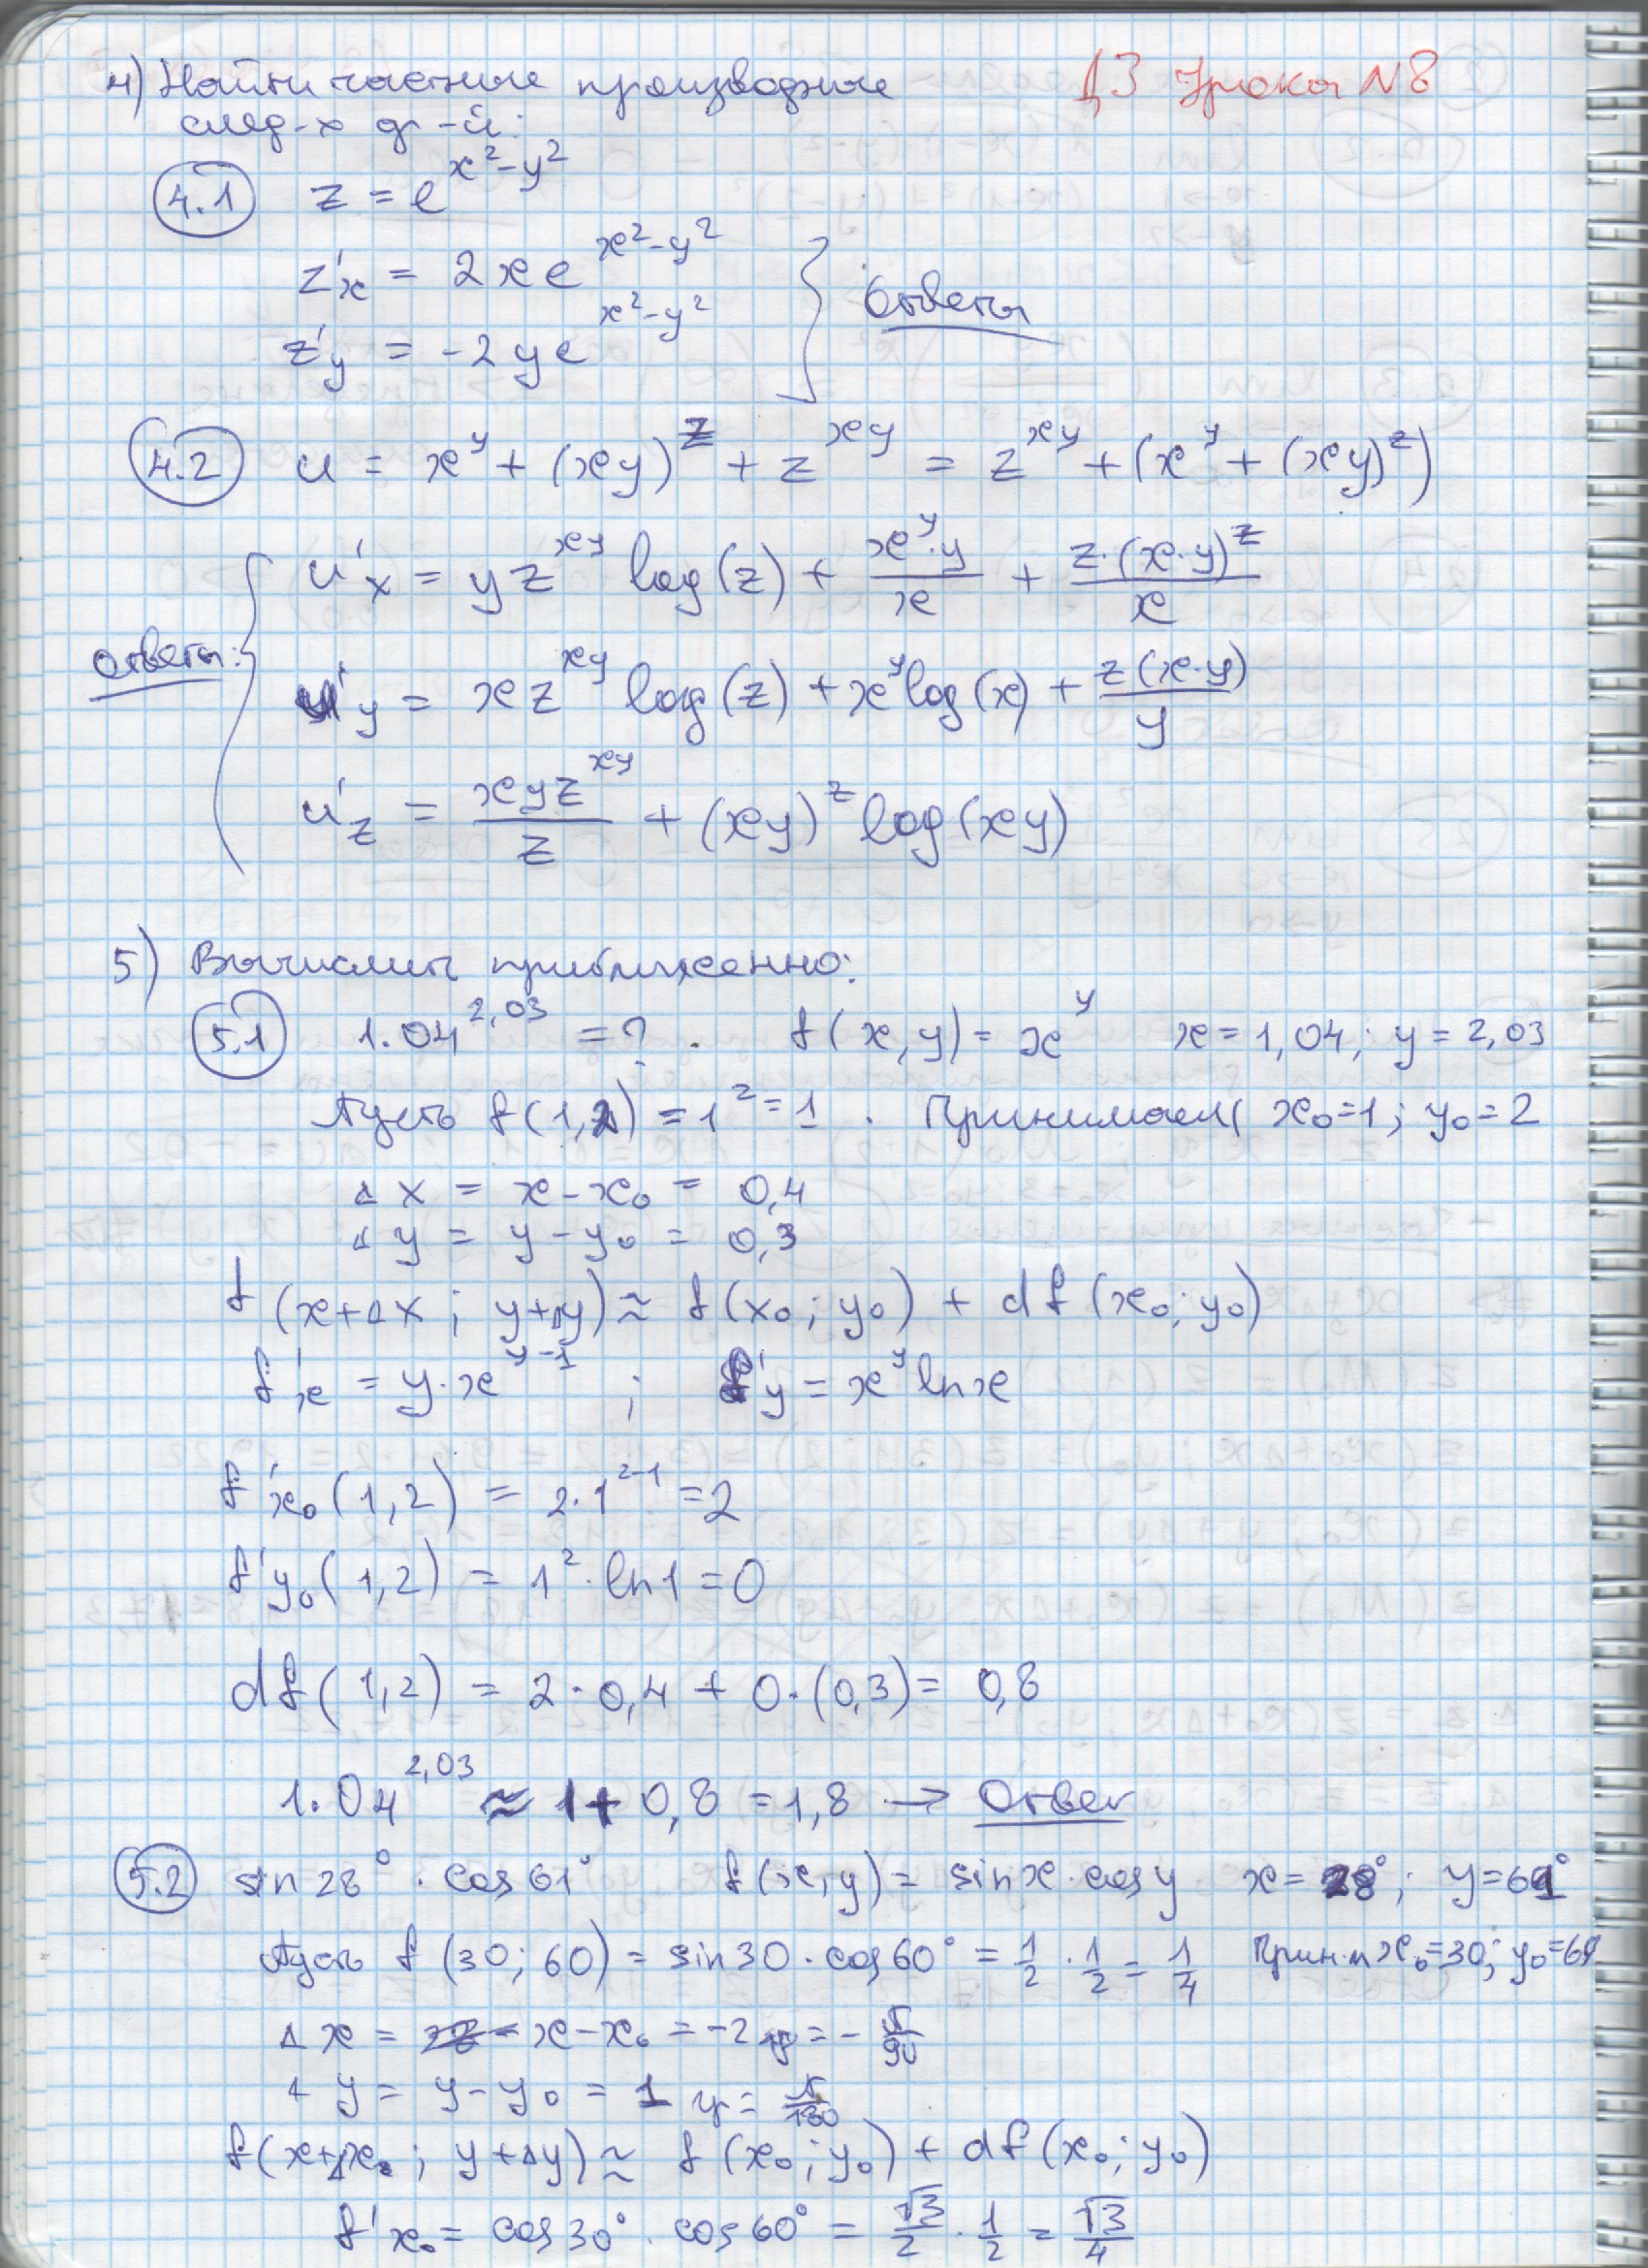 4) Найти частные производные ДЗ Урока N8
след-х ф-й:
4.1 z = e^{x²-y²}
z'x = 2xe^{x²-y²}
z'y = -2ye^{x²-y²} } Ответы
4.2 u = x^y + (xy)^z + z^{xy} = z^{xy} + (x^y + (xy)^z)
u'x = yz^{xy} log(z) + x^y·y/x + z·(x·y)^z/x
Ответы: { u'y = xz^{xy} log(z) + x^y log(x) + z(x·y)/y
u'z = xyz^{xy}/z + (xy)^z log(xy)
5) Вычислить приближенно:
5.1 1.04^{2,03} = ? . f(x,y) = x^y x = 1,04; y = 2,03
Пусть f(1,2) = 1² = 1 . Принимаем x₀=1; y₀=2
Δx = x-x₀ = 0,4
Δy = y-y₀ = 0,3
f(x+Δx; y+Δy) ≈ f(x₀; y₀) + df(x₀; y₀)
f'x = y·x^{y-1} ; f'y = x^y ln x
f'x₀(1,2) = 2·1^{2-1} = 2
f'y₀(1,2) = 1²·ln1 = 0
df(1,2) = 2·0,4 + 0·(0,3) = 0,8
1.04^{2,03} ≈ 1+0,8 = 1,8 → Ответ
5.2 sin28°·cos61° f(x,y) = sinx·cosy x = 28°; y=61°
Пусть f(30; 60) = sin30·cos60° = 1/2·1/2 = 1/4 x₀=30; y₀=60
Δx = x-x₀ = -2 = -π/90
Δy = y-y₀ = 1 = π/180
f(x+Δx; y+Δy) ≈ f(x₀; y₀) + df(x₀; y₀)
f'x₀ = cos30°·cos60° = √3/2·1/2 = √3/4